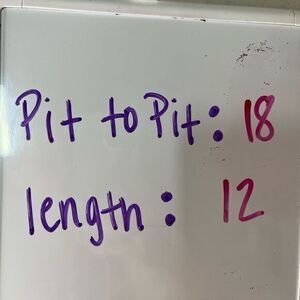 Pit to Pit: 18
length: 12